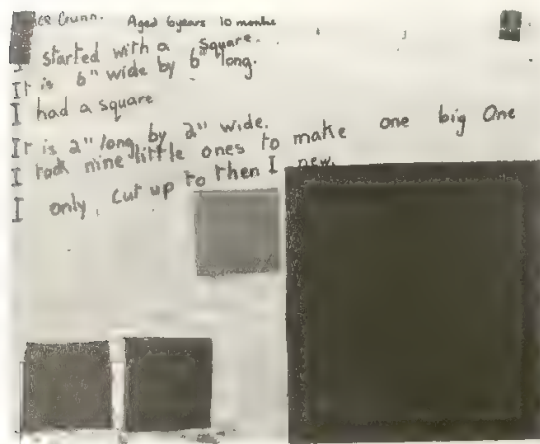 Crunn. Aged 6years 10 months
I started with a square.
It is 6" wide by 6" long.
I had a square
It is 2" long by 2" wide.
I took nine little ones to make one big One
I only cut up to then I new.